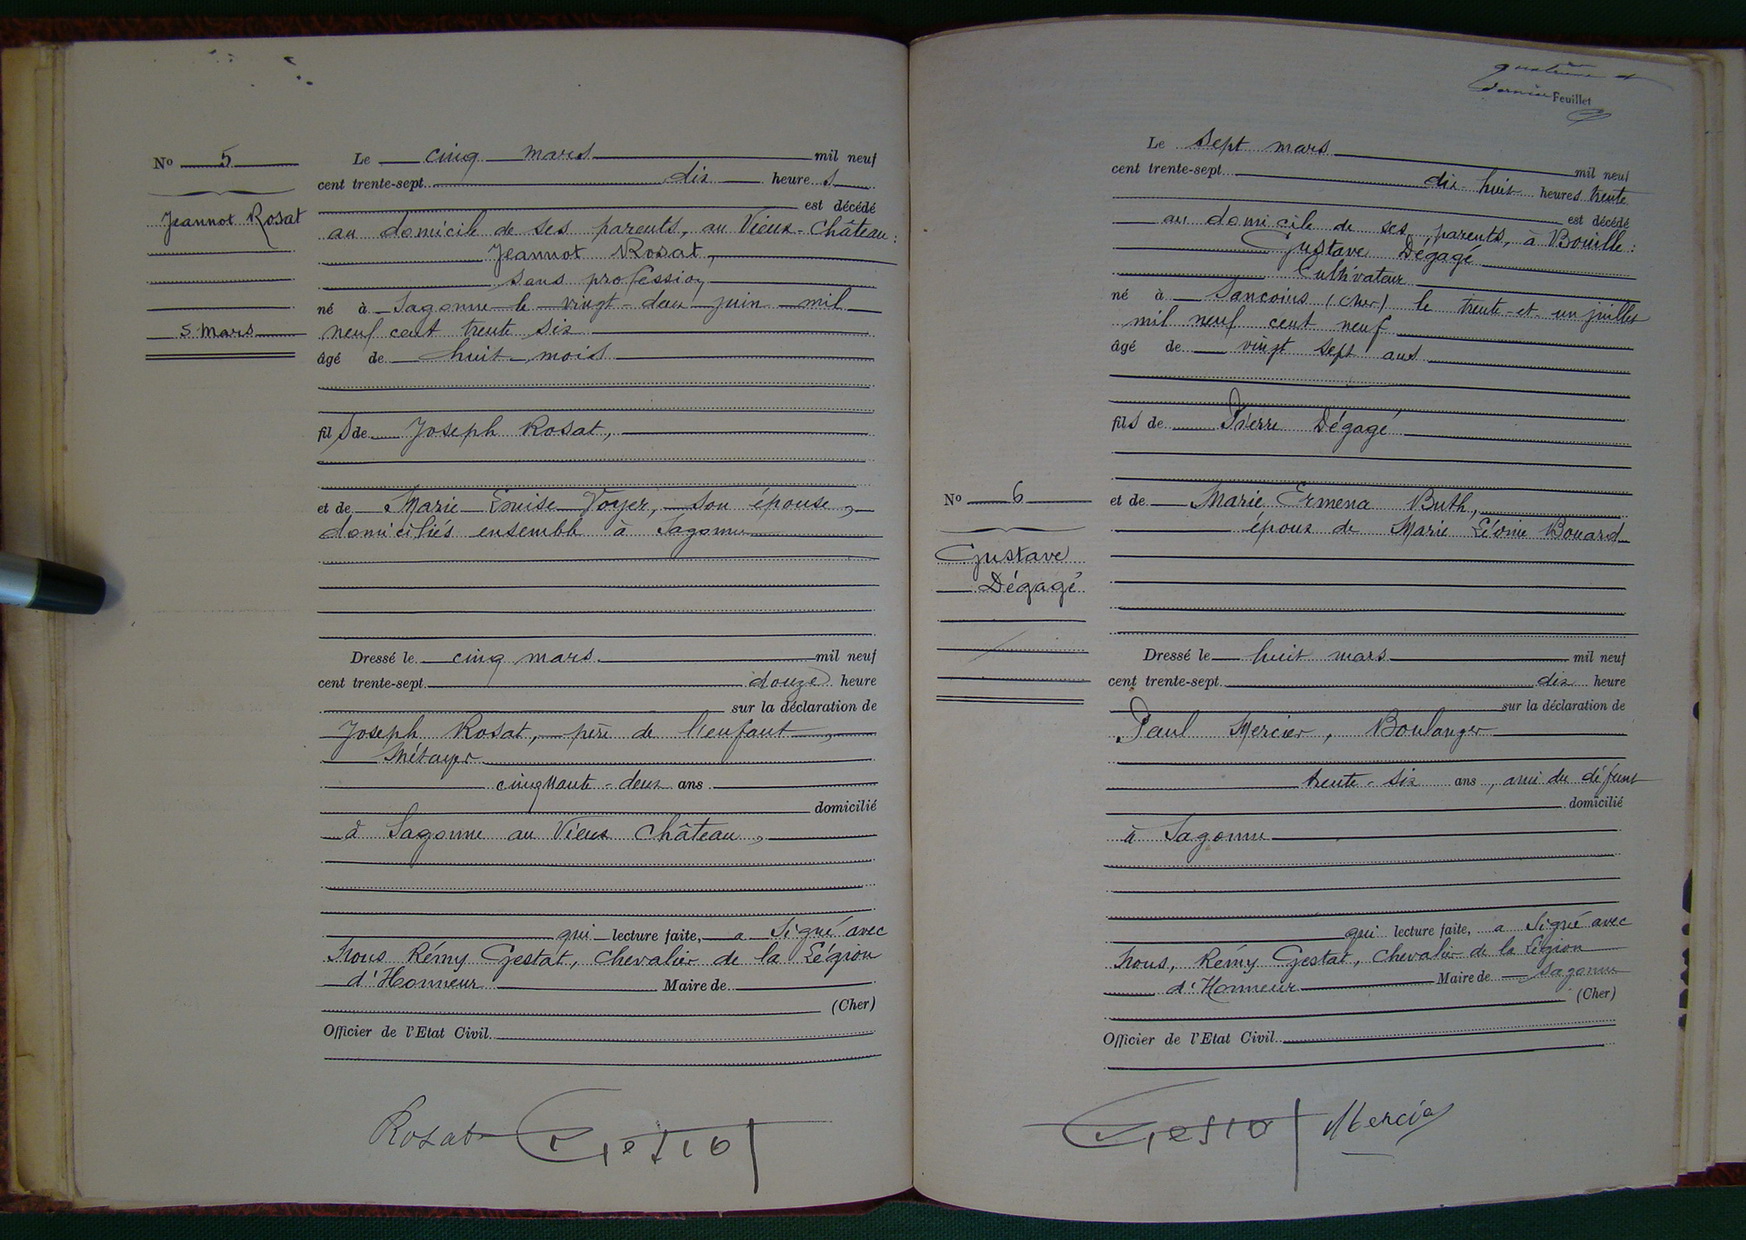 N° 5
Jeannot Rosat
5 Mars
Le cinq mars mil neuf
cent trente-sept dix heures
est décédé
au domicile de ses parents, au Vieux-Château :
Jeannot Rosat,
sans profession
né à Sagonne le vingt-deux juin mil
neuf cent trente six
âgé de huit mois
fils de Joseph Rosat,
et de Marie Louise Voyer, son épouse,
domiciliés ensemble à Sagonne
Dressé le cinq mars mil neuf
cent trente-sept douze heure
sur la déclaration de
Joseph Rosat, père de l'enfant,
Métayer
cinquante-deux ans
domicilié
à Sagonne au Vieux Château,
qui lecture faite, a signé avec
Nous Rémy Gestat, Chevalier de la Légion
d'Honneur Maire de
(Cher)
Officier de l'Etat Civil
Rosat Gestat
quatrième et
dernier Feuillet
N° 6
Gustave
Dégagé
Le sept mars mil neuf
cent trente-sept dix huit heures trente
est décédé
au domicile de ses parents, à Bouille :
Gustave Dégagé
Cultivateur
né à Sancoins (Cher) le trente-et-un juillet
mil neuf cent neuf
âgé de vingt sept ans
fils de Pierre Dégagé
et de Marie Ermena Buth,
époux de Marie Léonie Bouard
Dressé le huit mars mil neuf
cent trente-sept dix heure
sur la déclaration de
Paul Mercier, Boulanger
trente-six ans, ami du défunt
domicilié
à Sagonne
qui lecture faite, a signé avec
Nous, Rémy Gestat, Chevalier de la Légion
d'Honneur Maire de Sagonne
(Cher)
Officier de l'Etat Civil
Gestat Mercier